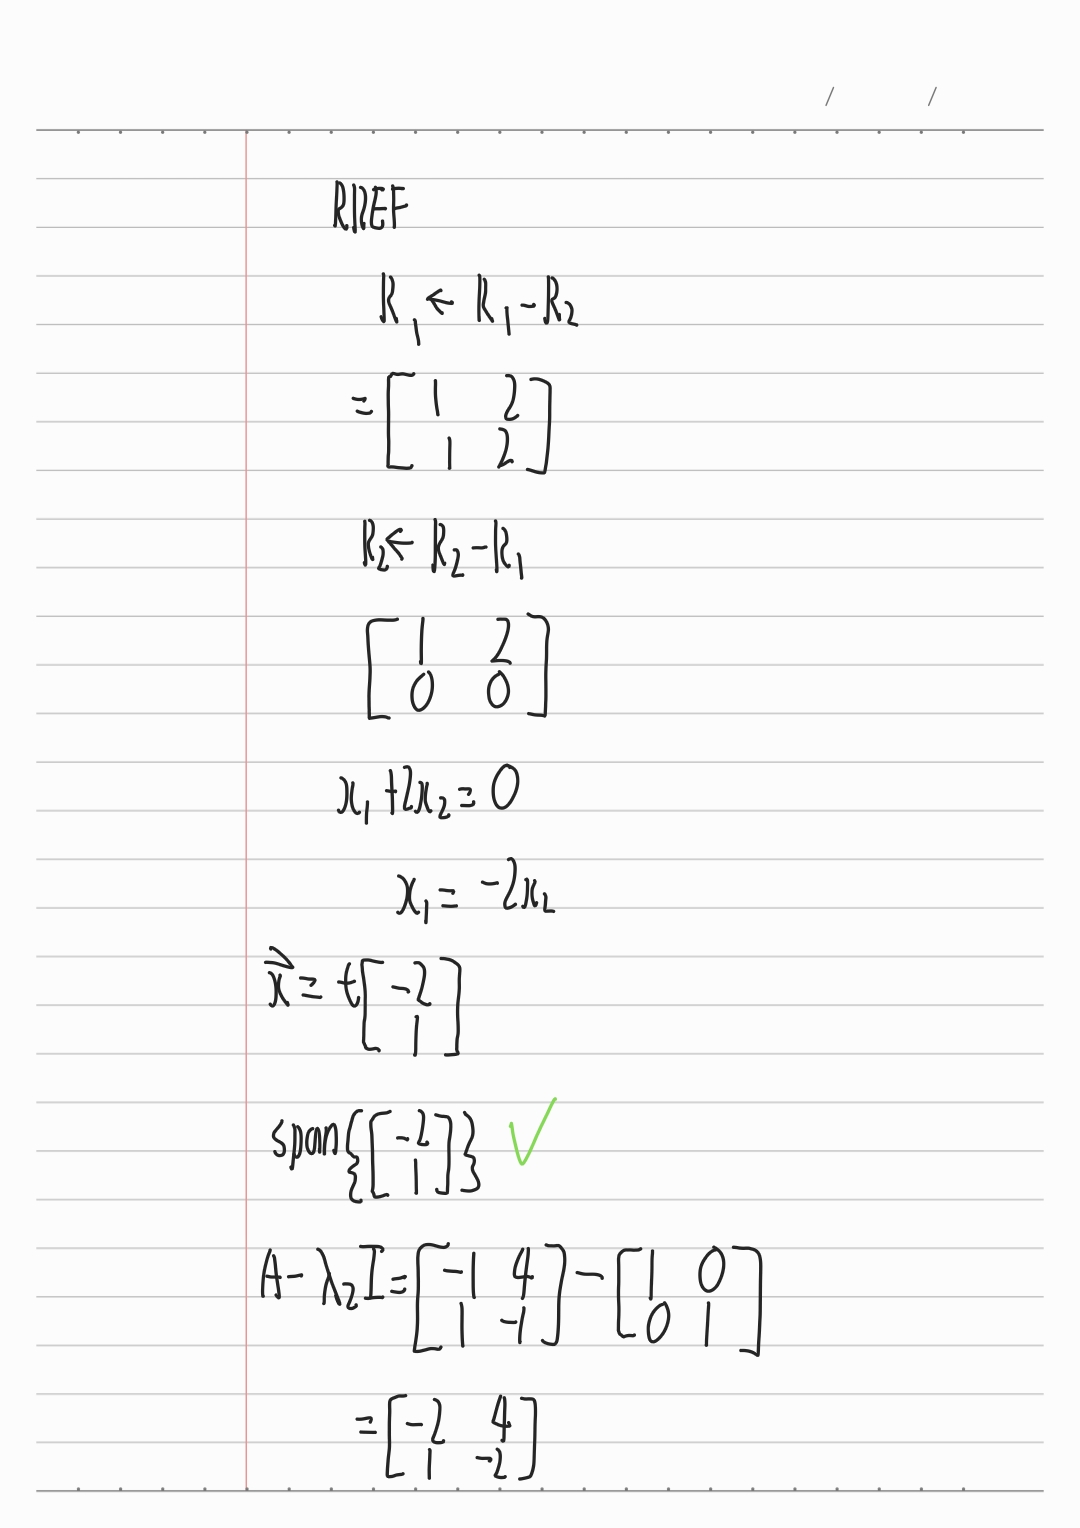 RREF
R₁ ← R₁ - R₂
= [ 1 2
1 2 ]
R₂ ← R₂ - R₁
[ 1 2
0 0 ]
x₁ + 2x₂ = 0
x₁ = -2x₂
x⃗ = t [ -2
1 ]
span { [ -2
1 ] } ✓
A - λ₂I = [ -1 4
1 -1 ] - [ 1 0
0 1 ]
= [ -2 4
1 -2 ]